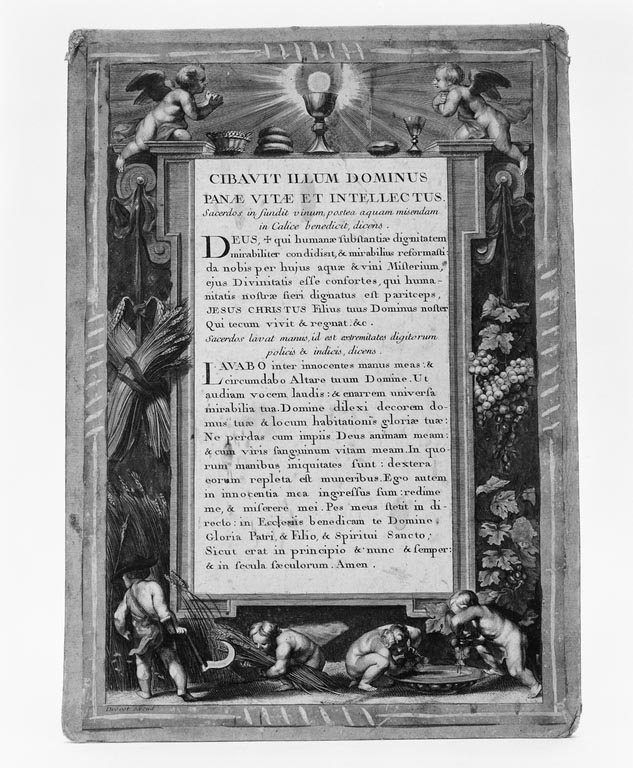 CIBAVIT ILLUM DOMINUS
PANÆ VITÆ ET INTELLECTUS.
Sacerdos in fundit vinum, postea aquam misendam
in Calice benedicit, dicens.
DEUS, ✝ qui humanæ substantiæ dignitatem
mirabiliter condidisti, & mirabilius reformasti:
da nobis per hujus aquæ & vini Misterium,
ejus Divinitatis esse consortes, qui huma-
nitatis nostræ fieri dignatus est pariteeps,
JESUS CHRISTUS Filius tuus Dominus noster
Qui tecum vivit & regnat. &c.
Sacerdos lavat manus, id est extremitates digitorum
policis & indicis, dicens.
LAVABO inter innocentes manus meas: &
circumdabo Altare tuum Domine. Ut
audiam vocem laudis: & enarrem universa
mirabilia tua. Domine dilexi decorem do-
mus tuæ & locum habitationis gloriæ tuæ:
Ne perdas cum impiis Deus animam meam:
& cum viris sanguinum vitam meam. In quo-
rum manibus iniquitates sunt: dextera
eorum repleta est muneribus. Ego autem
in innocentia mea ingressus sum: redime
me, & miserere mei. Pes meus stetit in di-
recto: in Ecclesiis benedicam te Domine.
Gloria Patri, & Filio, & Spiritui Sancto,
Sicut erat in principio & nunc & semper:
& in secula sæculorum. Amen.